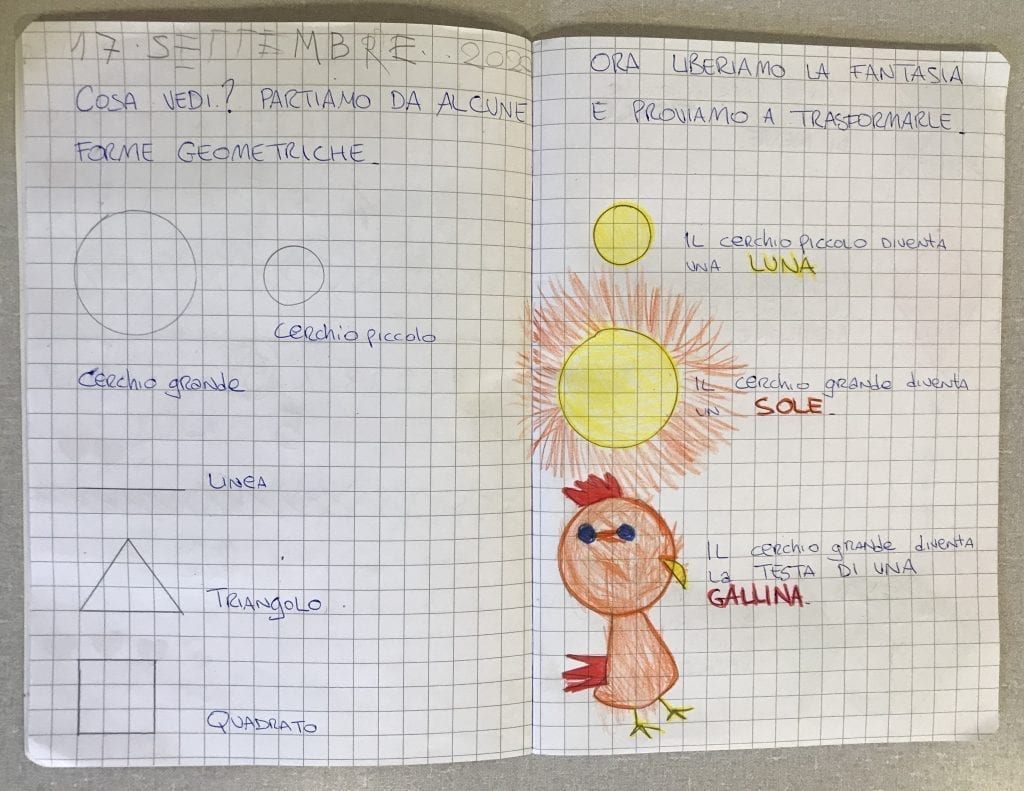 17. SETTEMBRE. 2020
COSA VEDI.? PARTIAMO DA ALCUNE
FORME GEOMETRICHE.
cerchio piccolo
cerchio grande
LINEA
TRIANGOLO.
QUADRATO
ORA LIBERIAMO LA FANTASIA
E PROVIAMO A TRASFORMARLE.
IL cerchio piccolo DIVENTA
UNA LUNA
IL cerchio grande diventa
UN SOLE.
IL cerchio grande diventa
La TESTA DI UNA
GALLINA.